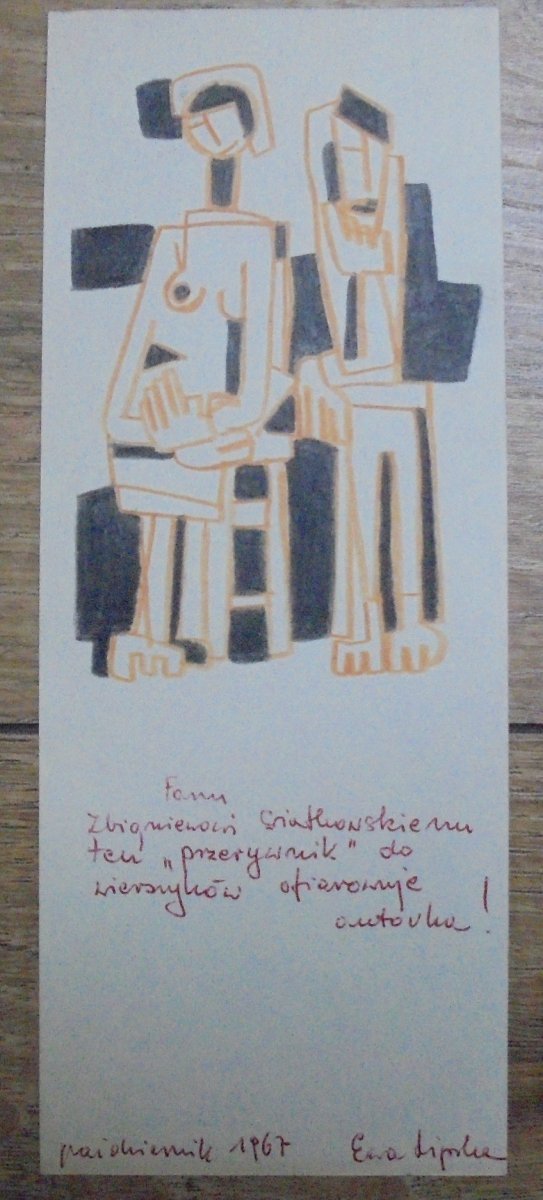 Panu
Zbigniewowi Świątkowskiemu
ten „przerywnik" do
wierszyków ofiarowuje
autorka!
październik 1967 Ewa Lipska